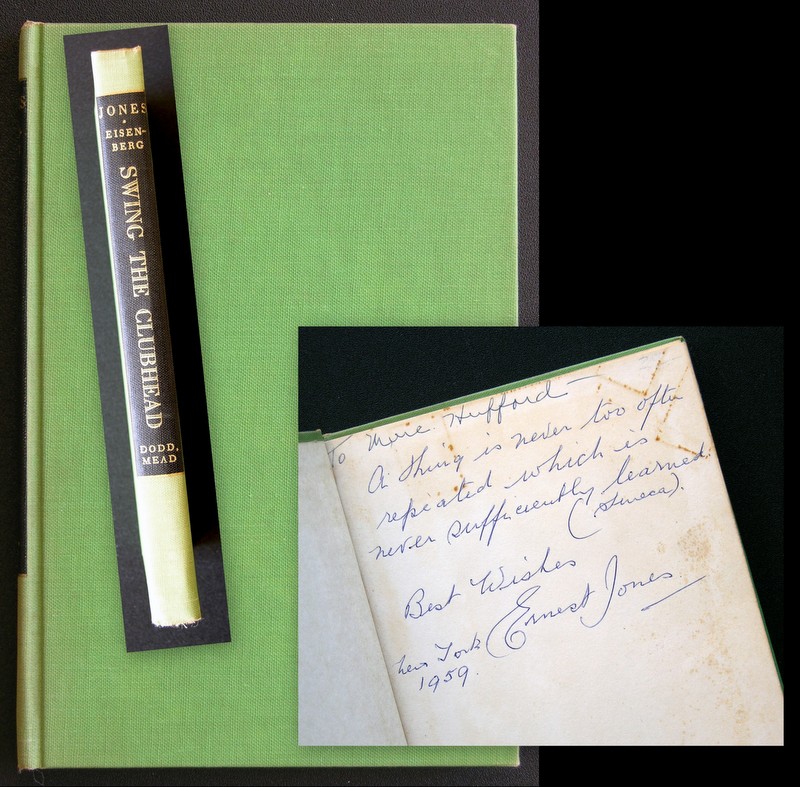 JONES
•
EISEN-
BERG
SWING THE CLUBHEAD
DODD,
MEAD
To Marc Hufford —
A thing is never too often
repeated which is
never sufficiently learned.
(Seneca).
Best Wishes
Ernest Jones
New York
1959.